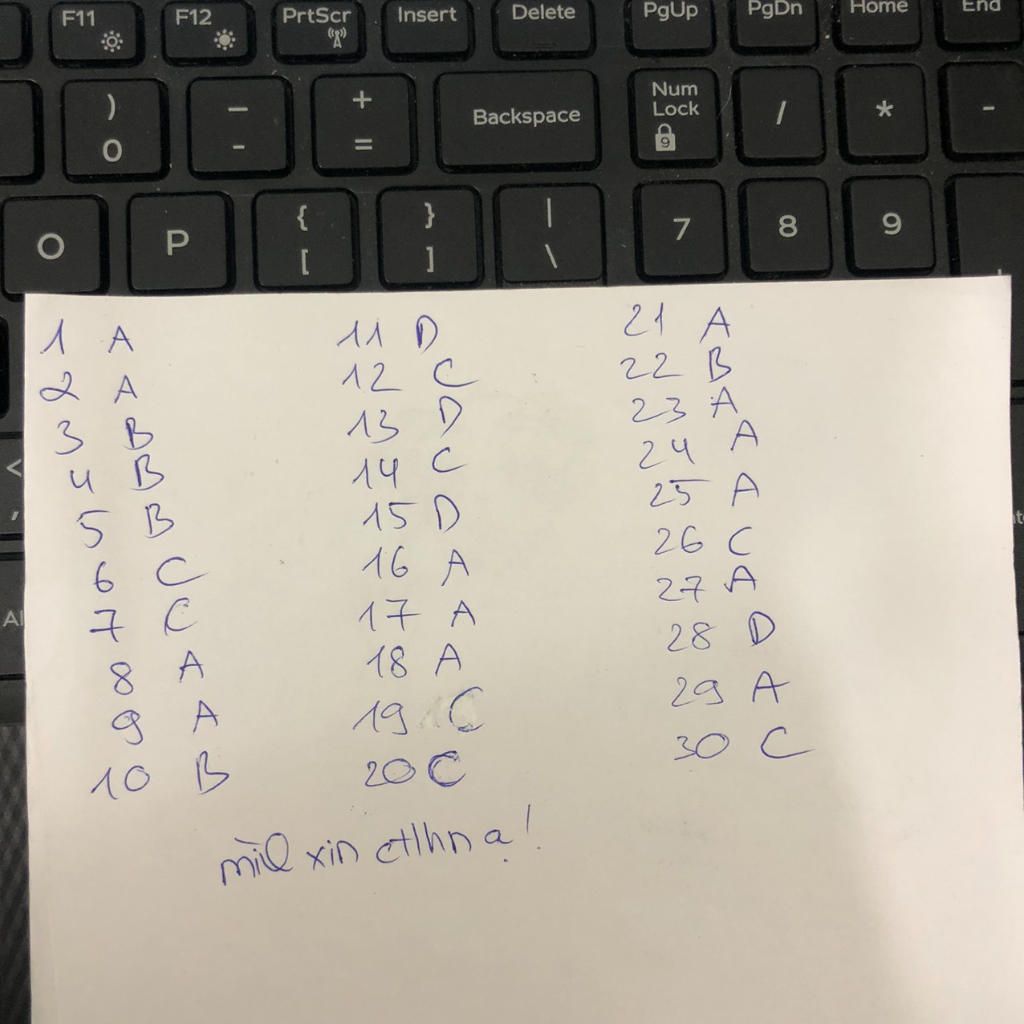 F11 F12 PrtScr Insert Delete PgUp PgDn Home End
) _ + Backspace Num Lock / * -
0 - = 9
O P { } | 7 8 9
[ ] \
1 A
2 A
3 B
4 B
5 B
6 C
7 C
8 A
9 A
10 B
11 D
12 C
13 D
14 C
15 D
16 A
17 A
18 A
19 C
20 C
21 A
22 B
23 A
24 A
25 A
26 C
27 A
28 D
29 A
30 C
xin ctlhn ạ!